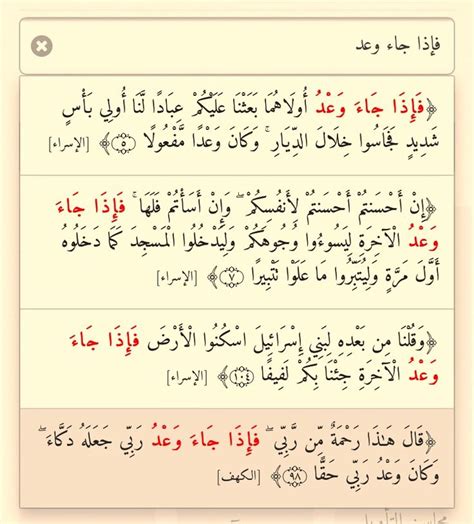 فإذا جاء وعد
﴿فَإِذَا جَاءَ وَعْدُ أُولَاهُمَا بَعَثْنَا عَلَيْكُمْ عِبَادًا لَّنَا أُولِي بَأْسٍ
شَدِيدٍ فَجَاسُوا خِلَالَ الدِّيَارِ ۚ وَكَانَ وَعْدًا مَّفْعُولًا ﴿٥﴾ [الإسراء]
﴿إِنْ أَحْسَنتُمْ أَحْسَنتُمْ لِأَنفُسِكُمْ ۖ وَإِنْ أَسَأْتُمْ فَلَهَا ۚ فَإِذَا جَاءَ
وَعْدُ الْآخِرَةِ لِيَسُوءُوا وُجُوهَكُمْ وَلِيَدْخُلُوا الْمَسْجِدَ كَمَا دَخَلُوهُ
أَوَّلَ مَرَّةٍ وَلِيُتَبِّرُوا مَا عَلَوْا تَتْبِيرًا ﴿٧﴾ [الإسراء]
﴿وَقُلْنَا مِن بَعْدِهِ لِبَنِي إِسْرَائِيلَ اسْكُنُوا الْأَرْضَ فَإِذَا جَاءَ
وَعْدُ الْآخِرَةِ جِئْنَا بِكُمْ لَفِيفًا ﴿١٠٤﴾ [الإسراء]
﴿قَالَ هَٰذَا رَحْمَةٌ مِّن رَّبِّي ۖ فَإِذَا جَاءَ وَعْدُ رَبِّي جَعَلَهُ دَكَّاءَ ۖ
وَكَانَ وَعْدُ رَبِّي حَقًّا ﴿٩٨﴾ [الكهف]